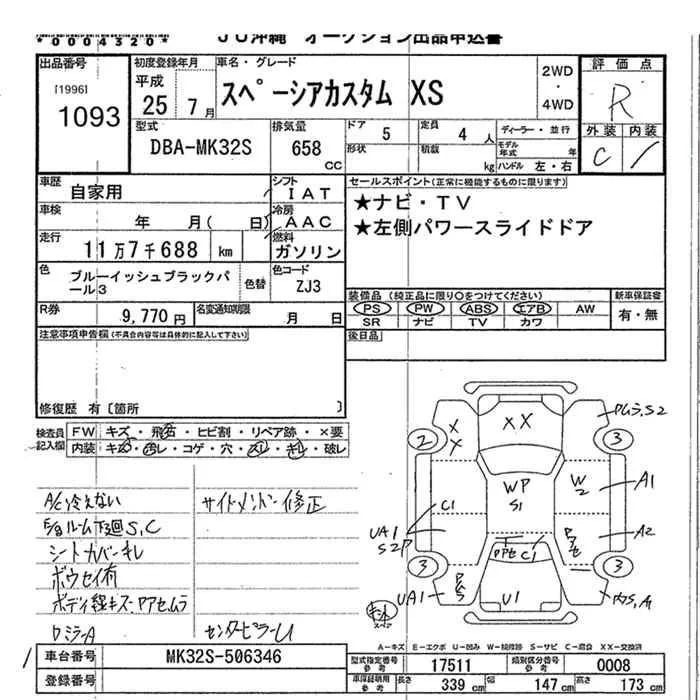 *0004320*
JU沖縄 オークション出品申込書
出品番号
[1996]
1093
初度登録年月
平成
25 7月
車名・グレード
スペーシアカスタム XS
2WD
・
4WD
評価点
R
外装 内装
C
型式
DBA-MK32S
排気量
658
CC
ドア 5
定員 4 人
ディーラー・並行
形状
積載 kg
モデル年式 年
ハンドル 左・右
車歴
自家用
シフト
IAT
車検
年 月( 日)
冷房
AAC
走行
11万7千688 km
燃料
ガソリン
色
ブルーイッシュブラックパール3
色替
色コード
ZJ3
R券
9,770円
名変通知期限
月 日
セールスポイント(正常に機能するものに限ります)
★ナビ・TV
★左側パワースライドドア
装備品 (純正品に限り○をつけてください)
PS PW ABS エアB AW
SR ナビ TV カワ
新車保証書
有・無
後日品
注意事項申告欄(不具合内容等は具体的に記入して下さい)
修復歴 有〔箇所 〕
検査員記入欄
FW キズ・飛石・ヒビ割・リペア跡・×要
内装 キズ・汚レ・コゲ・穴・スレ・キレ・破レ
A/C冷えない
サイドメンバー修正
ルーム下廻S,C
シートカバーキレ
ボウセイ有
ボディ軽キズ・Pアセムラ
ロミラーA
センターピラーU
XX
X
X
2
3
WP
S1
W2
A1
A2
C1
UA1
S2P
3
3
Pアセ
C1
U1
UA1
キット
スペア
A-キズ E-エクボ U-凹み W-補修跡 S-サビ C-腐食 XX-交換済
車台番号
MK32S-506346
登録番号
型式指定番号
参考
17511
類別区分番号
参考
0008
車庫証明用
参考
長さ 339 cm
幅 147 cm
高さ 173 cm